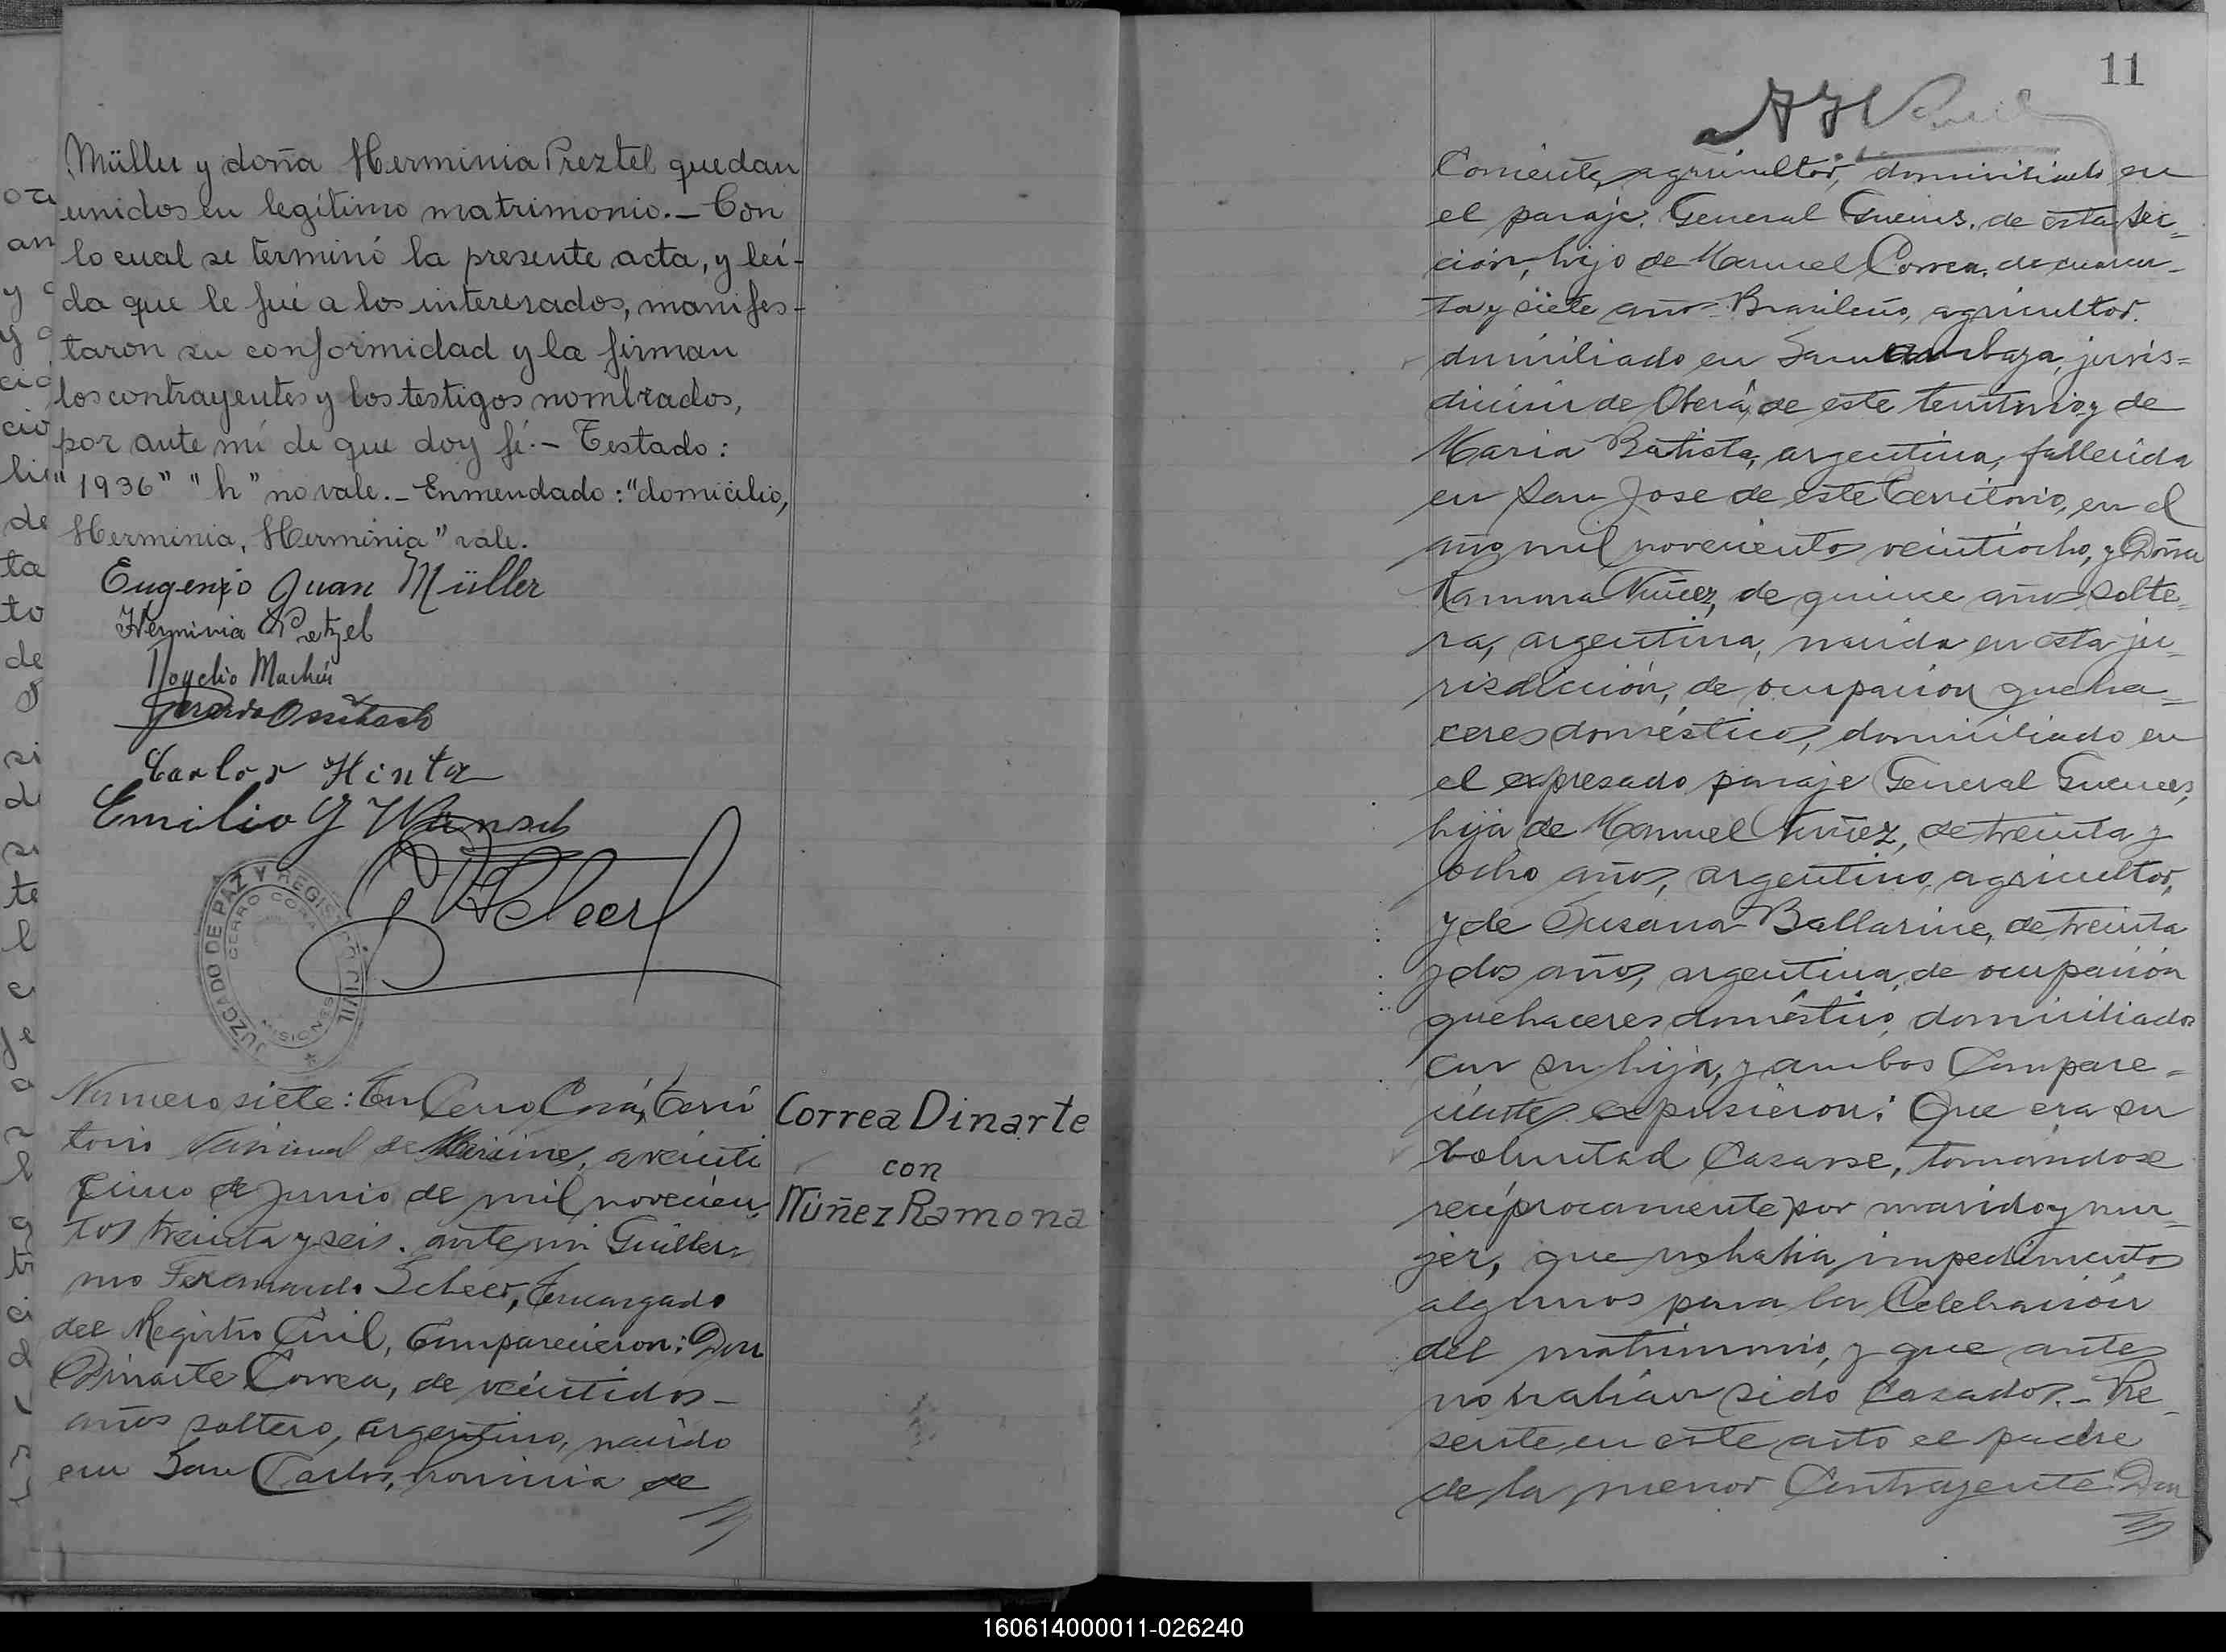 Müller y doña Herminia Preztel quedan
unidos en legítimo matrimonio.— Con
lo cual se terminó la presente acta, y leí-
da que le fué a los interesados, manifes-
taron su conformidad y la firman
los contrayentes y los testigos nombrados,
por ante mí de que doy fé.— Testado:
"1936" "h" no vale.— Enmendado: "domicilio,
Herminia, Herminia" vale.
Eugenio Juan Müller
Herminia Pretzel
Rogelio Machín
Gerardo
Carlos Hintz
Emilio G Wunsch
G F Scheer
JUZGADO DE PAZ Y REGISTRO CIVIL
CERRO CORA
MISIONES
Numero siete: En Cerro Corá, Terri
torio Nacional de Misiones, a veinti
cinco de Junio de mil novecien-
tos treinta y seis. ante mi Guiller-
mo Fernando Scheer, Encargado
del Registro Civil, Comparecieron: Don
Dinarte Correa, de veintidos-
años soltero, argentino, nacido
en San Carlos, Provincia de
Correa Dinarte
con
Núñez Ramona
11
Corrientes, agricultor, domiciliado en
el paraje. General Guemes. de esta sec-
ción, hijo de Manuel Correa, de cuaren-
ta y siete años Brasileño, agricultor.
domiciliado en Samambaya, juris=
dicción de Oberá, de este territorio y de
Maria Batista, argentina, fallecida
en San Jose de este Territorio, en el
año mil noveciento veintiocho, y Doña
Ramona Nuñez, de quince años solte=
ra, argentina, nacida en esta ju-
risdicción, de ocupacion queha=
ceres doméstico, domiciliado en
el expresado paraje General Guemes,
hija de Manuel Nuñez, de treinta y
ocho años, argentino, agricultor,
y de Susana Ballarine, de treinta
y dos años, argentina, de ocupación
quehaceres doméstico, domiciliados
con su hija, y ambos Compare=
cientes expusieron: Que era su
voluntad Casarse, tomándose
recíprocamente por marido y mu-
jer, que no habia impedimentos
algunos para la Celebración
del matrimonio, y que antes
no habian sido Casados.- Pre-
sente en este acto el padre
de la menor Contrayente Don
160614000011-026240